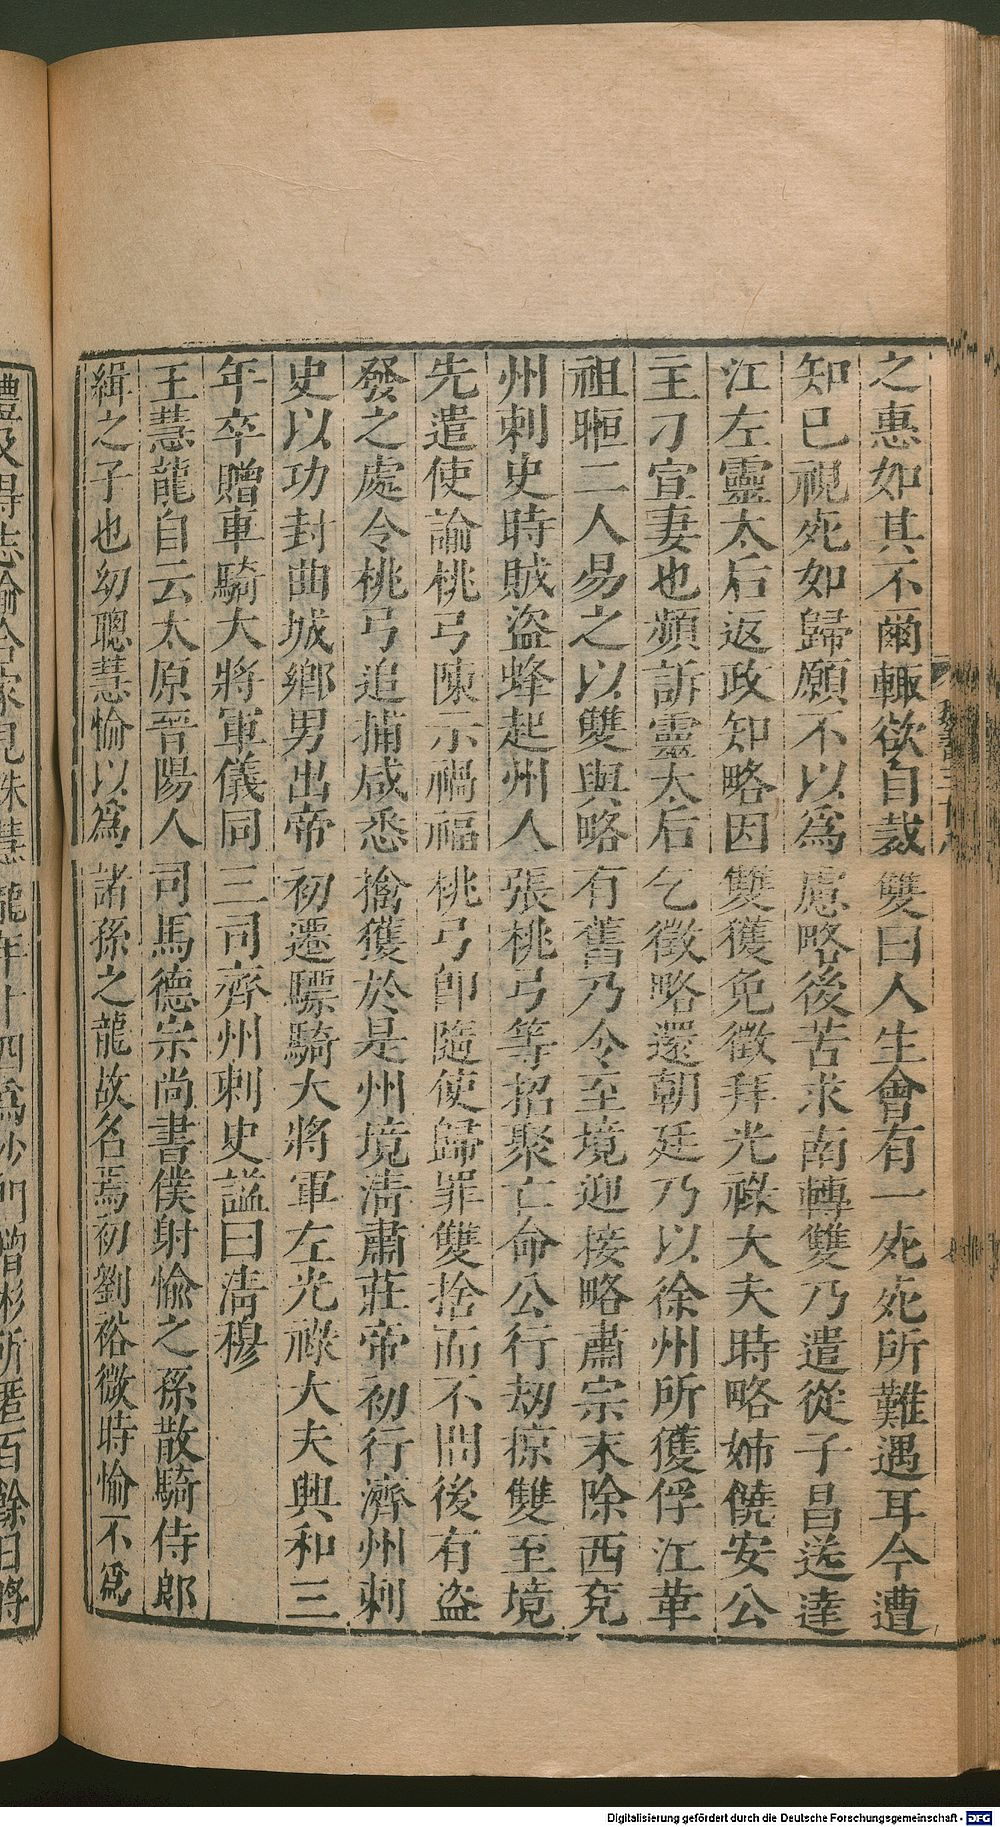 之惠如其不爾輙欲自裁雙曰人生會有一死死所難遇耳今遭
知已視死如歸願不以爲慮略後苦求南轉雙乃遣從子昌送達
江左靈太后返政知略因雙獲免徵拜光祿大夫時略姉饒安公
主刁宣妻也頻訴靈太后乞徵略還朝廷乃以徐州所獲俘江革
祖暅二人易之以雙與略有舊乃令至境迎接略肅宗末除西兗
州刺史時賊盜蜂起州人張桃弓等招聚亡命公行刼掠雙至境
先遣使諭桃弓陳示禍福桃弓卽隨使歸罪雙捨而不問後有盜
發之處令桃弓追捕咸悉擒獲於是州境淸肅莊帝初行濟州刺
史以功封曲城鄉男出帝初遷驃騎大將軍左光祿大夫興和三
年卒贈車騎大將軍儀同三司齊州刺史謚曰淸穆
王慧龍自云太原晉陽人司馬德宗尚書僕射愉之孫散騎侍郎
緝之子也幼聰慧愉以爲諸孫之龍故名焉初劉裕微時愉不爲
禮及得志愉合家見誅慧龍年十四爲沙門僧彬所匿百餘日將
Digitalisierung gefördert durch die Deutsche Forschungsgemeinschaft - DFG